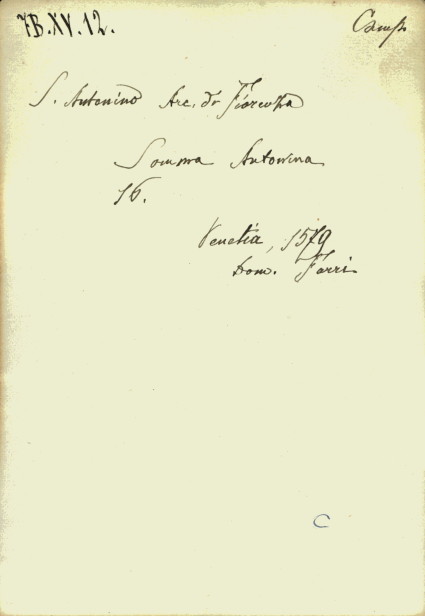 7B.XV.12.
Camp.
S. Antonino Arc. di Fiorenza
Somma Antonina
16.
Venetia, 1579
Dom. Farri
C